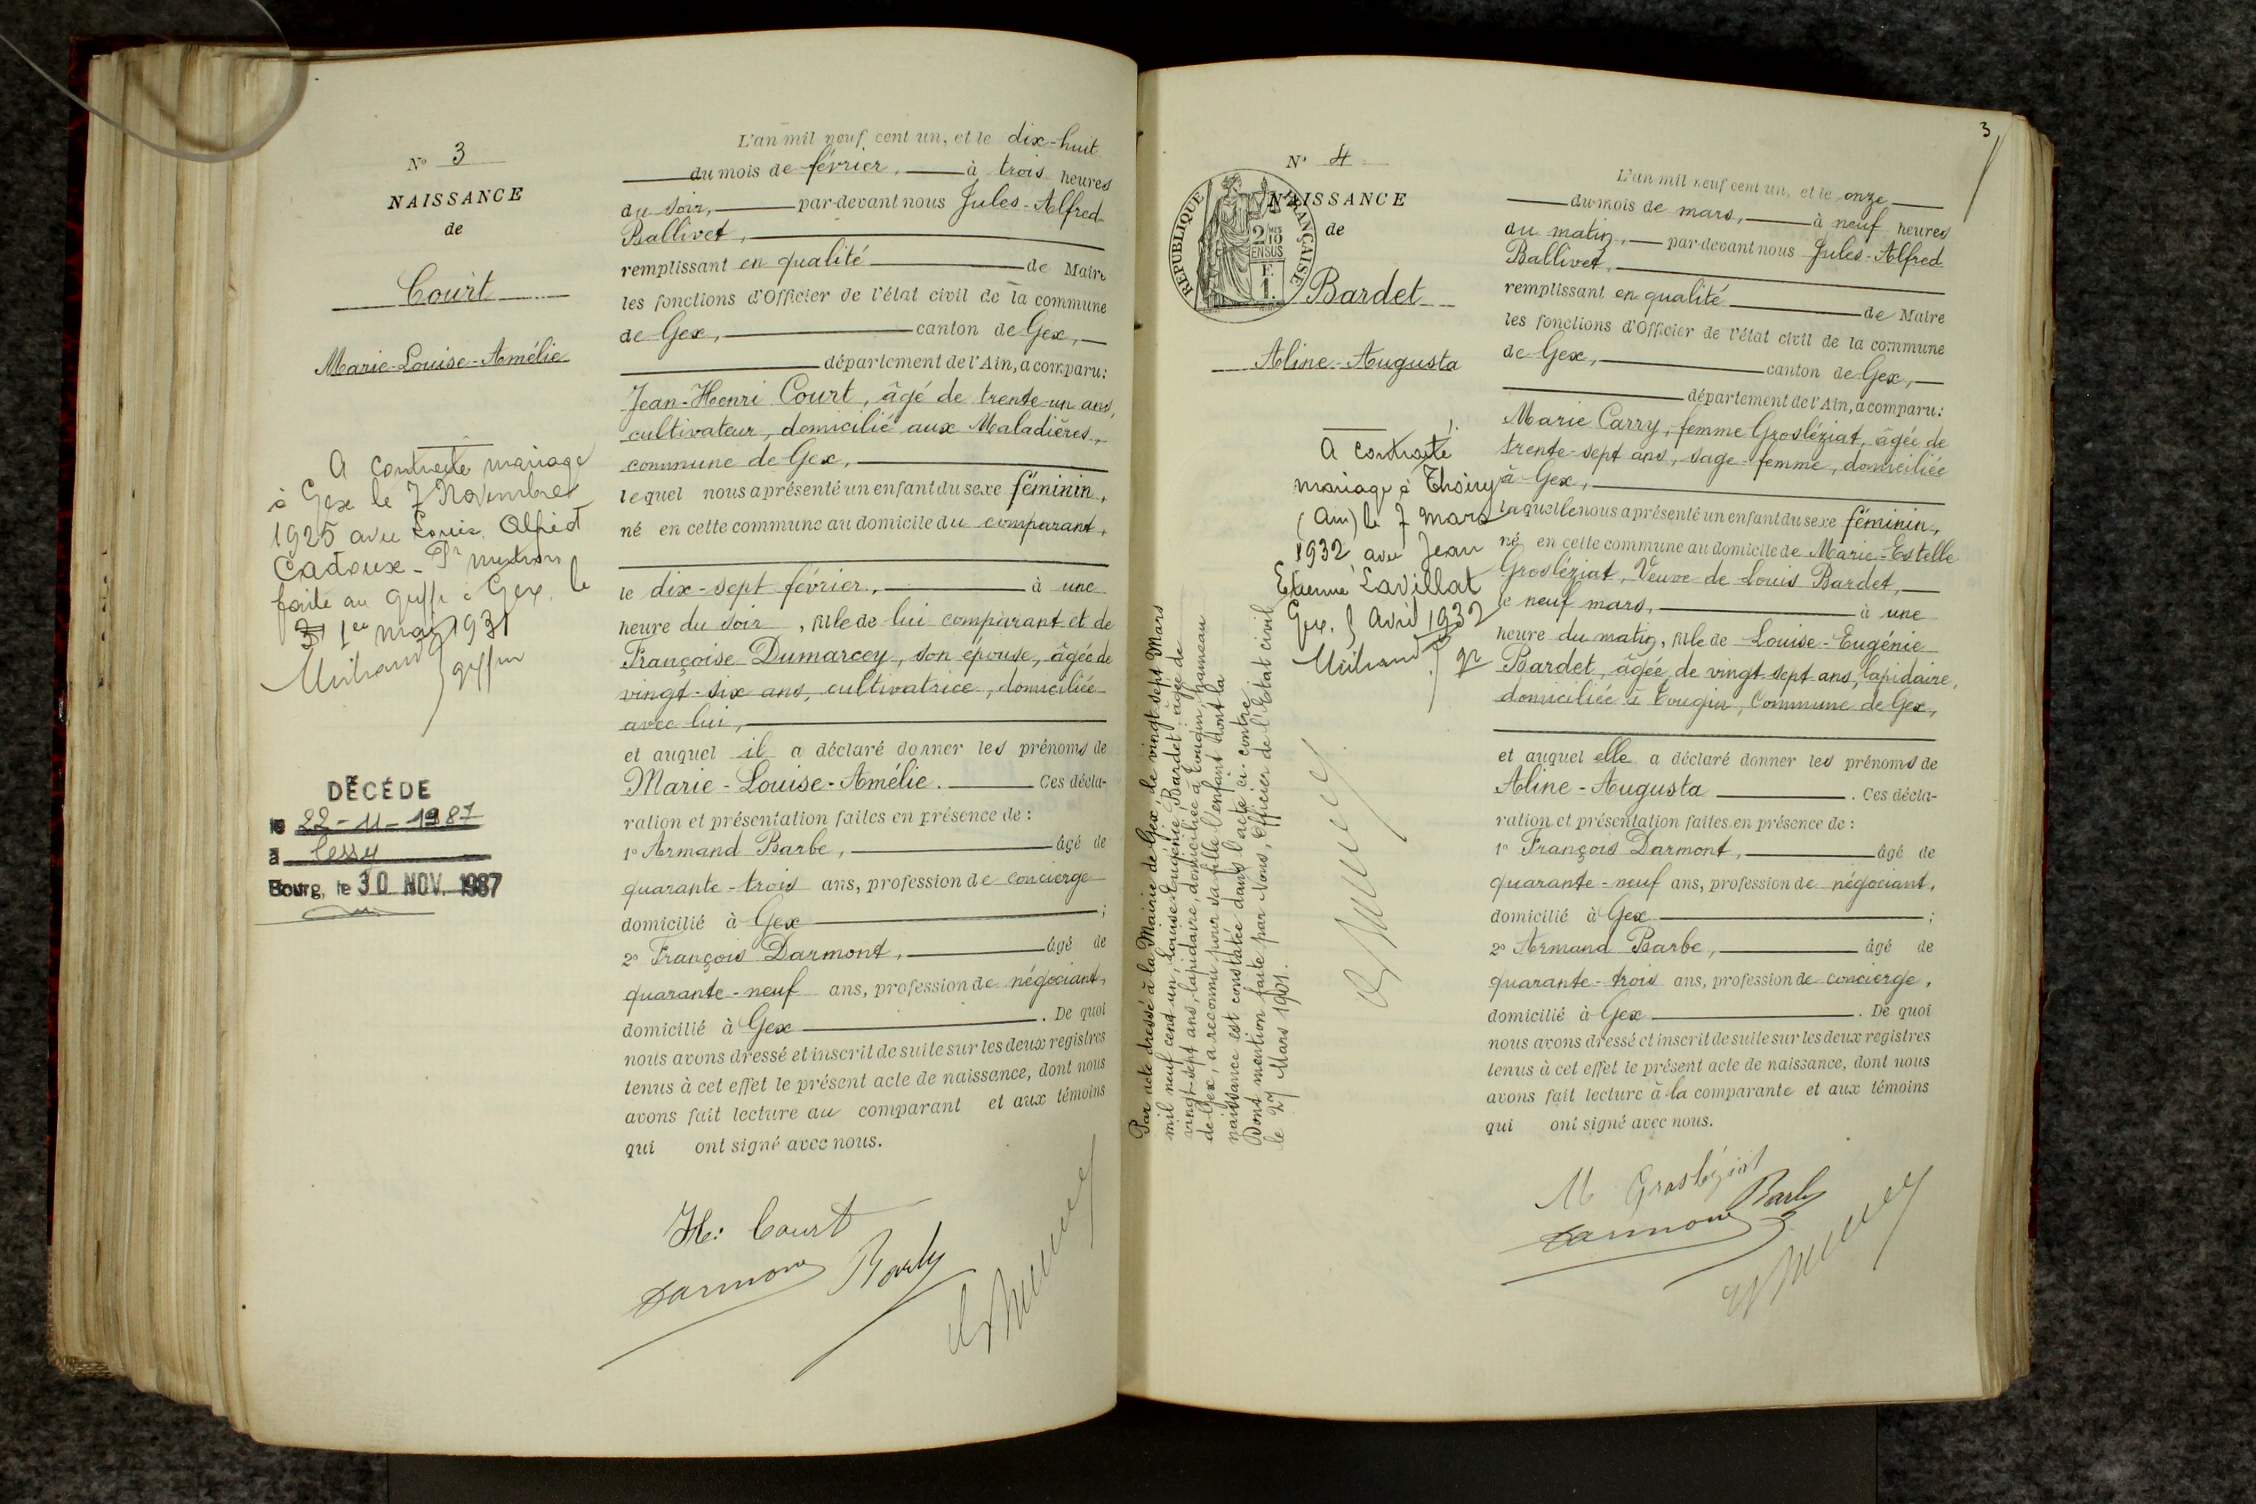 N° 3
NAISSANCE
de
Court
Marie-Louise-Amélie
A contracté mariage
à Gex le 7 Novembre
1925 avec Louis Alfred
Cadoux - Pr mention
faite au greffe à Gex, le
1er mai 1931
DÉCÉDÉ
le 22-11-1987
à Cessy
Bourg, le 30 NOV. 1987
L'an mil neuf cent un, et le dix-huit
du mois de février, à trois heures
du soir, par-devant nous Jules-Alfred
Ballivet,
remplissant en qualité de Maire
les fonctions d'Officier de l'état civil de la commune
de Gex, canton de Gex,
département de l'Ain, a comparu:
Jean-Henri Court, âgé de trente-un ans,
cultivateur, domicilié aux Maladières,
commune de Gex,
lequel nous a présenté un enfant du sexe féminin,
né en cette commune au domicile du comparant,
le dix-sept février, à une
heure du soir, fille de lui comparant et de
Françoise Dumarcey, son épouse, âgée de
vingt-six ans, cultivatrice, domiciliée
avec lui,
et auquel il a déclaré donner les prénoms de
Marie-Louise-Amélie. Ces décla-
ration et présentation faites en présence de :
1° Armand Barbe, âgé de
quarante-trois ans, profession de concierge
domicilié à Gex ;
2° François Darmont, âgé de
quarante-neuf ans, profession de négociant,
domicilié à Gex . De quoi
nous avons dressé et inscrit de suite sur les deux registres
tenus à cet effet le présent acte de naissance, dont nous
avons fait lecture au comparant et aux témoins
qui ont signé avec nous.
H. Court
Darmont Barbe
3
N° 4
NAISSANCE
de
RÉPUBLIQUE FRANÇAISE
2/10 EN SUS
Bardet
Aline-Augusta
A contracté
mariage à Thoiry
(Ain) le 7 mars
1932 avec Jean
Etienne Lavillat
Gex, 5 Avril 1932
Par acte dressé à la Mairie de Gex, le vingt-sept Mars
mil neuf cent un, Louise Eugénie Bardet âgée de
vingt-sept ans, lapidaire, domiciliée à Tougin, hameau
de Gex, a reconnu pour sa fille l'enfant dont la
naissance est constatée dans l'acte ci-contre.
Dont mention faite par Nous, Officier de l'Etat civil
le 27 Mars 1901.
L'an mil neuf cent un, et le onze
du mois de mars, à neuf heures
du matin, par-devant nous Jules-Alfred
Ballivet,
remplissant en qualité de Maire
les fonctions d'Officier de l'état civil de la commune
de Gex, canton de Gex,
département de l'Ain, a comparu:
Marie Carry, femme Grosléziat, âgée de
trente-sept ans, sage-femme, domiciliée
à Gex,
laquelle nous a présenté un enfant du sexe féminin,
né en cette commune au domicile de Marie-Estelle
Grosléziat, Veuve de Louis Bardet,
le neuf mars, à une
heure du matin, fille de Louise-Eugénie
Bardet, âgée de vingt-sept ans, lapidaire,
domiciliée à Tougin, Commune de Gex,
et auquel elle a déclaré donner les prénoms de
Aline-Augusta . Ces décla-
ration et présentation faites en présence de :
1° François Darmont, âgé de
quarante-neuf ans, profession de négociant,
domicilié à Gex ;
2° Armand Barbe, âgé de
quarante-trois ans, profession de concierge,
domicilié à Gex . De quoi
nous avons dressé et inscrit de suite sur les deux registres
tenus à cet effet le présent acte de naissance, dont nous
avons fait lecture à la comparante et aux témoins
qui ont signé avec nous.
M Grosléziat
Darmont Barbe